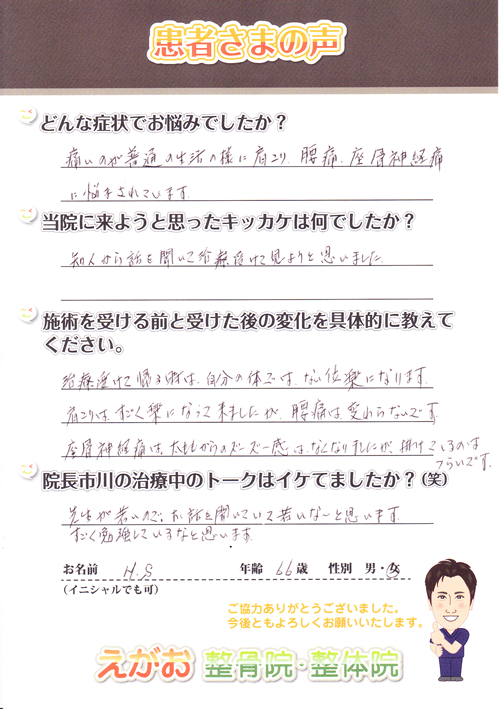 患者さまの声
どんな症状でお悩みでしたか？
痛いのが普通の生活の様に肩こり、腰痛、座骨神経痛
に悩まされています。
当院に来ようと思ったキッカケは何でしたか？
知人から話を聞いて治療受けて見ようと思いました。
施術を受ける前と受けた後の変化を具体的に教えて
ください。
治療受けて帰る時は、自分の体では、ない位楽になります。
肩こりは、すごく楽になって来ましたが、腰痛は変わらないです。
座骨神経痛は、太ももからのズーズー感はなくなりましたが、掛けているのは
つらいです。
院長市川の治療中のトークはイケてましたか？（笑）
先生が若いので、お話を聞いていて若いな〜と思います。
すごく勉強しているなと思います。
お名前 H.S 年齢 66歳 性別 男・女
（イニシャルでも可）
ご協力ありがとうございました。
今後ともよろしくお願いいたします。
えがお 整骨院・整体院